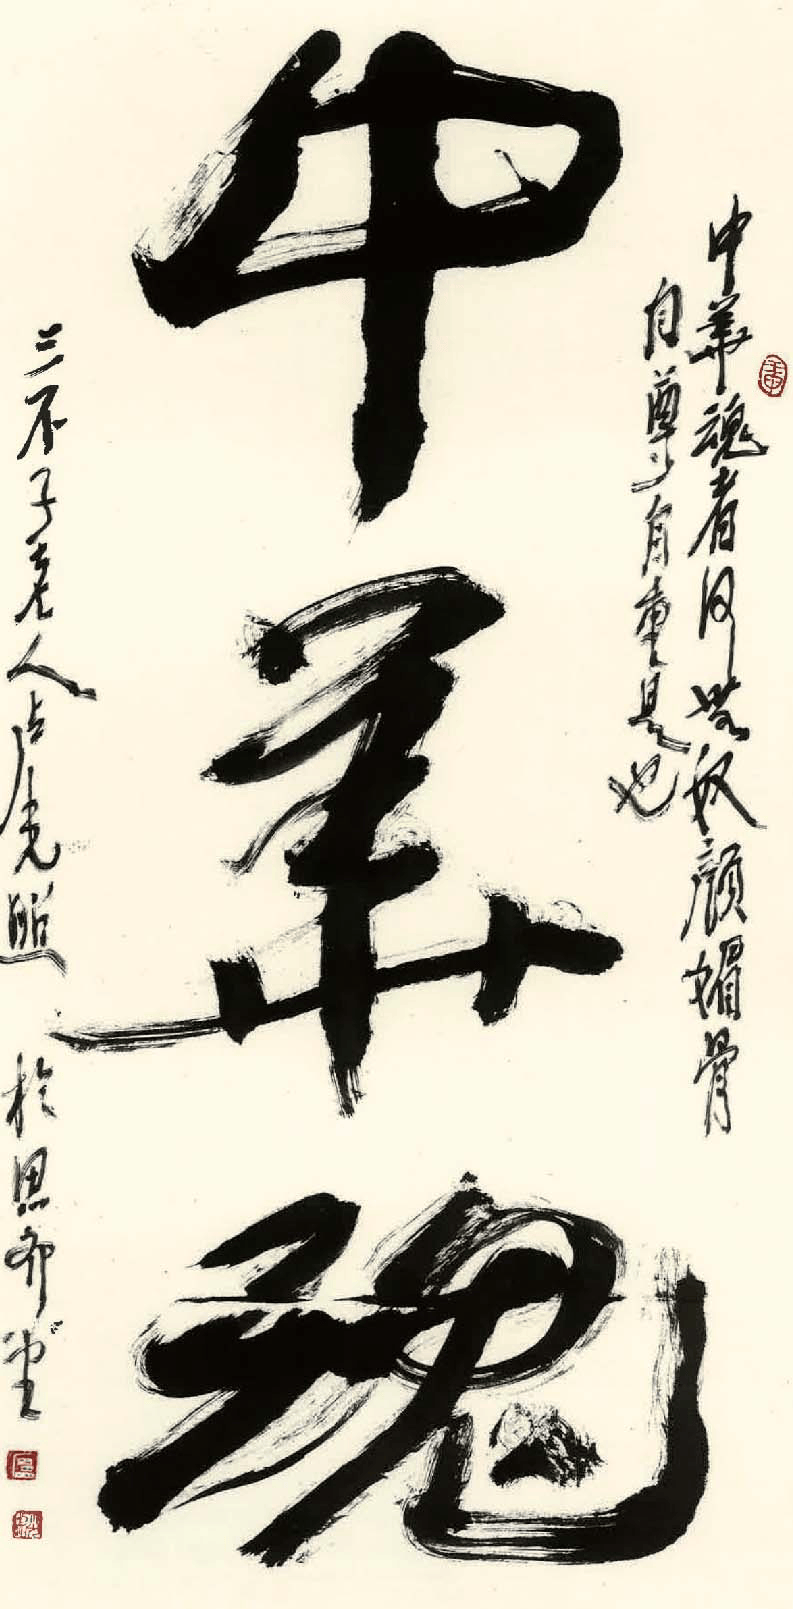 中華魂者何無奴顏媚骨
自尊自重是也
中華魂
三不子老人卢光照 於思堂